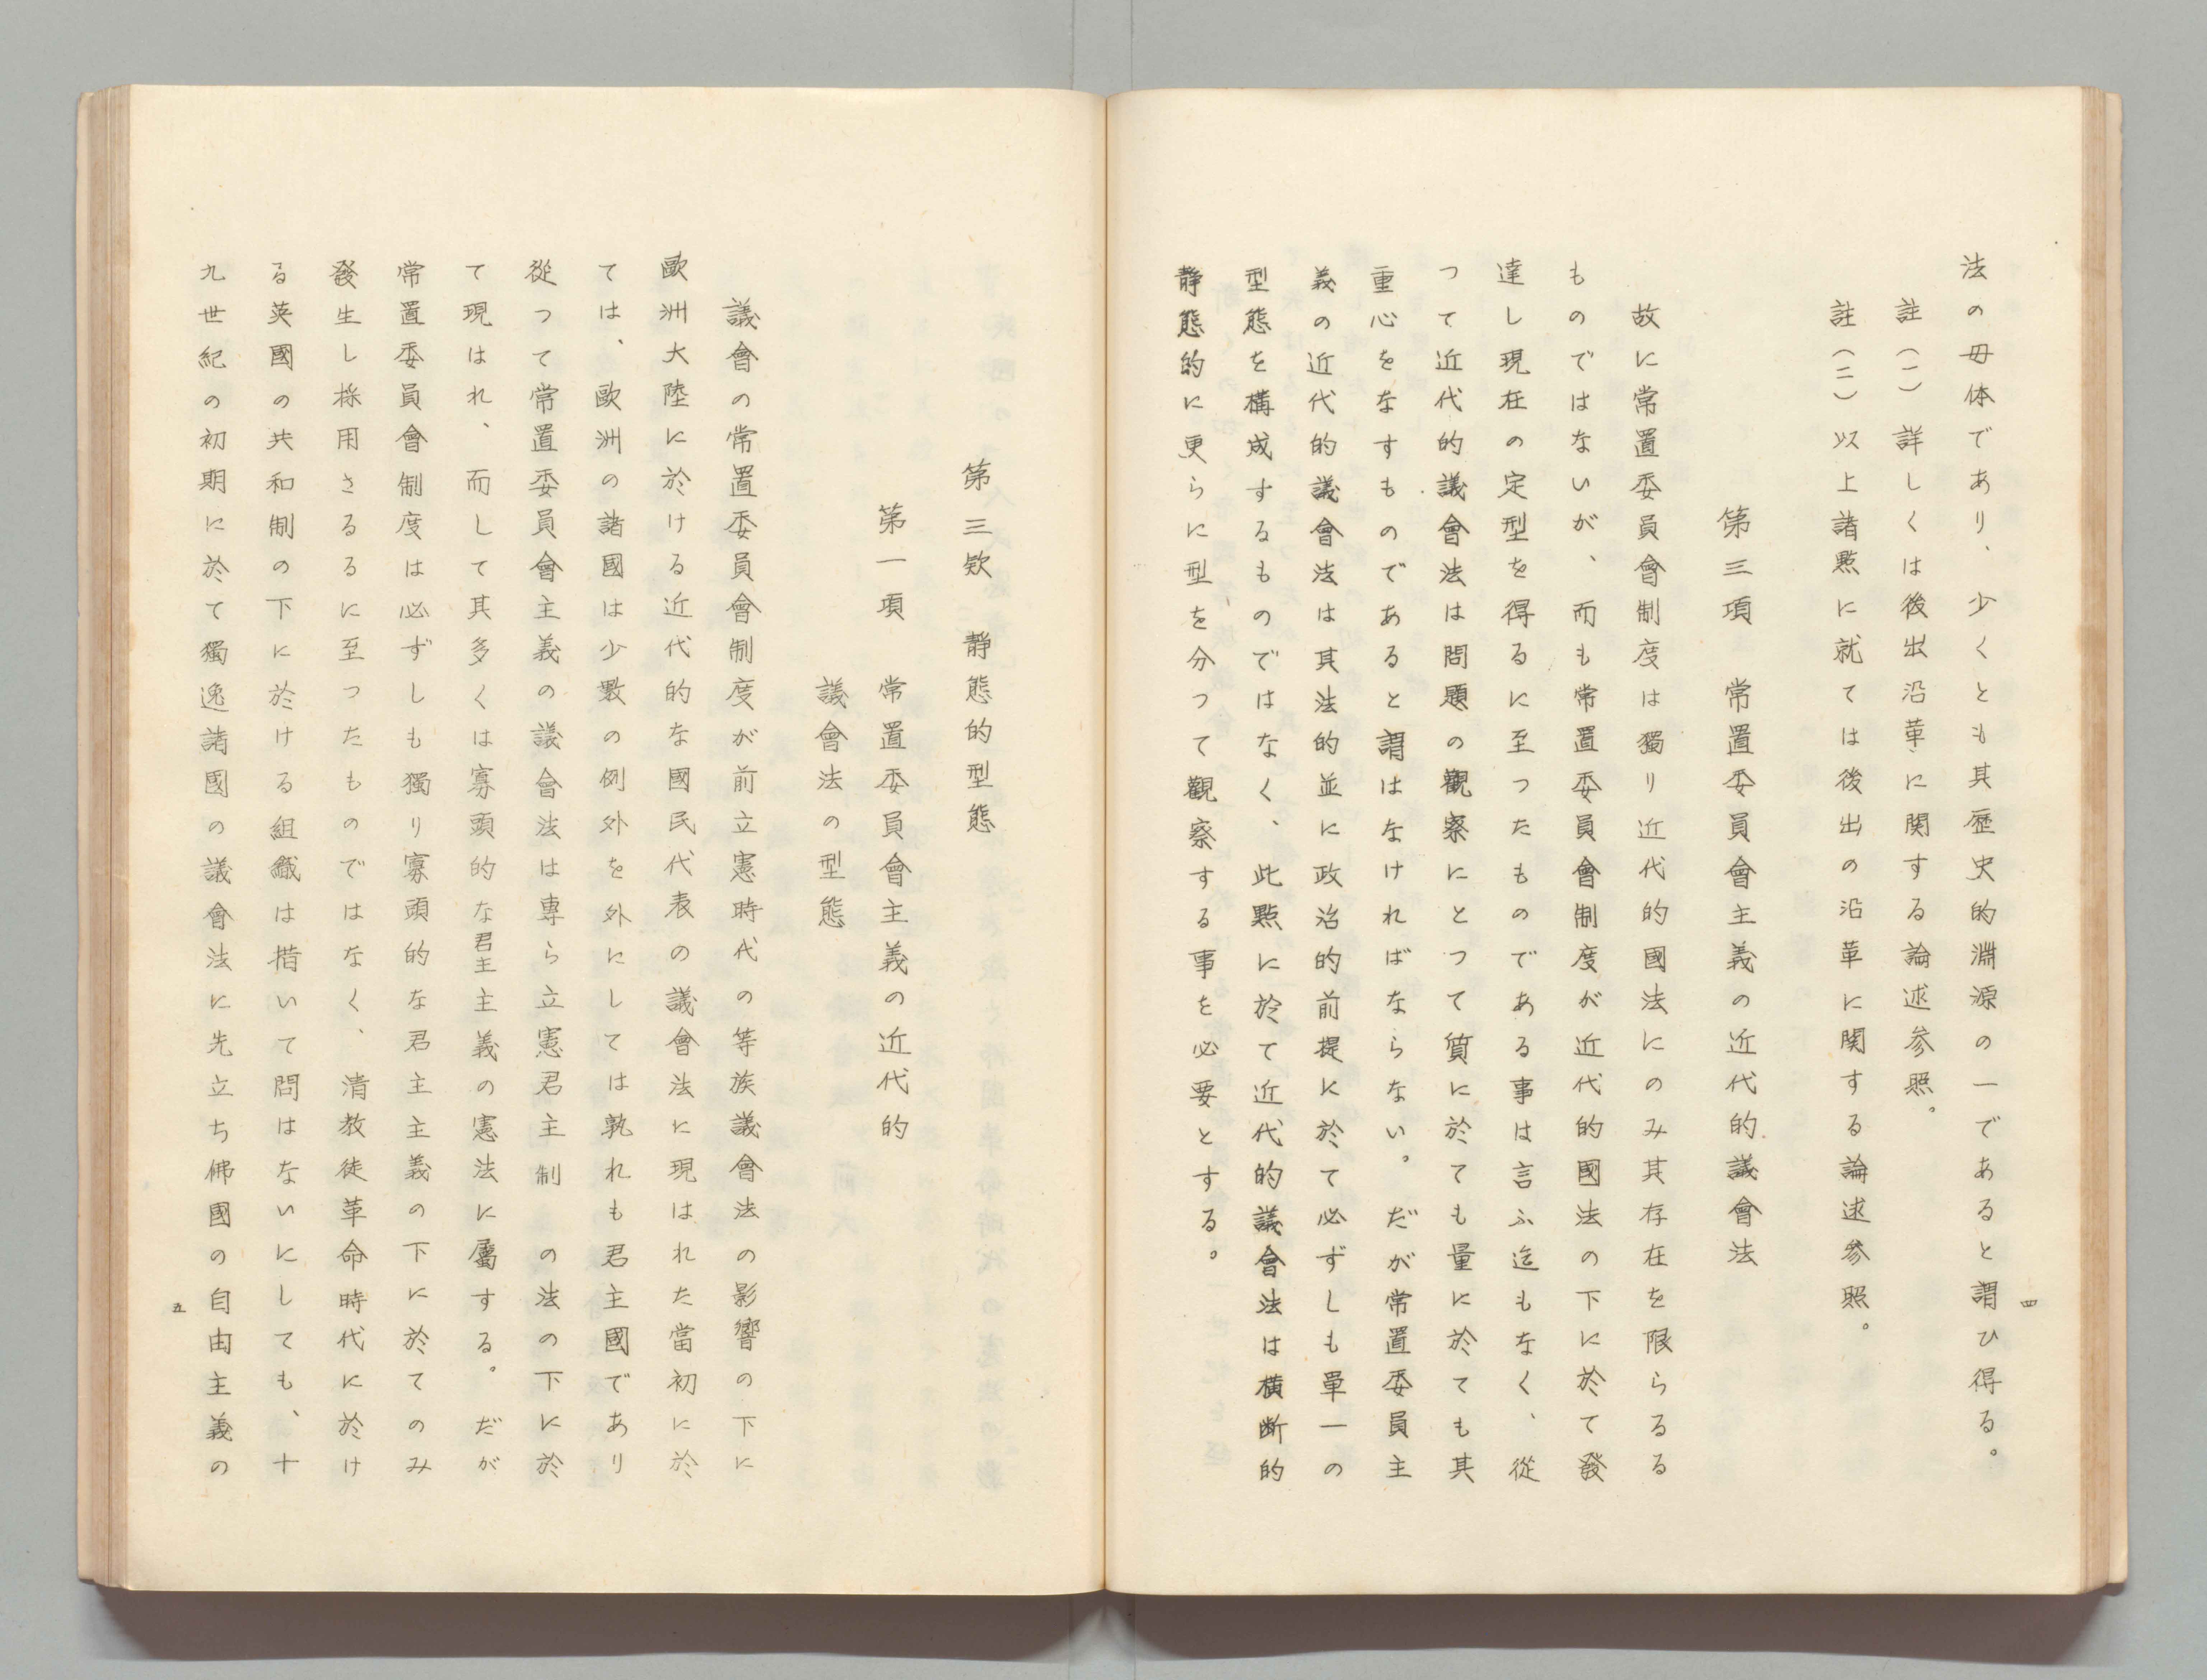 法の母体であり、少くとも其歴史的淵源の一であると謂ひ得る。
註（一）詳しくは後出沿革に関する論述参照。
註（二）以上諸點に就ては後出の沿革に関する論述参照。
第三項　常置委員會主義の近代的議會法
故に常置委員會制度は獨り近代的國法にのみ其存在を限らるる
ものではないが、而も常置委員會制度が近代的國法の下に於て發
達し現在の定型を得るに至つたものである事は言ふ迄もなく、從
つて近代的議會法は問題の觀察にとつて質に於ても量に於ても其
重心をなすものであると謂はなければならない。だが常置委員主
義の近代的議會法は其法的並に政治的前提に於て必ずしも單一の
型態を構成するものではなく、此點に於て近代的議會法は横断的
靜態的に更らに型を分つて觀察する事を必要とする。
四
第三欵　靜態的型態
第一項　常置委員會主義の近代的
議會法の型態
議會の常置委員會制度が前立憲時代の等族議會法の影響の下に
歐洲大陸に於ける近代的な國民代表の議會法に現はれた當初に於
ては、歐洲の諸國は少數の例外を外にしては孰れも君主國であり
從つて常置委員會主義の議會法は專ら立憲君主制の法の下に於
て現はれ、而して其多くは寡頭的な君主主義の憲法に屬する。だが
常置委員會制度は必ずしも獨り寡頭的な君主主義の下に於てのみ
發生し採用さるるに至つたものではなく、清教徒革命時代に於け
る英國の共和制の下に於ける組織は措いて問はないにしても、十
九世紀の初期に於て獨逸諸國の議會法に先立ち佛國の自由主義の
五